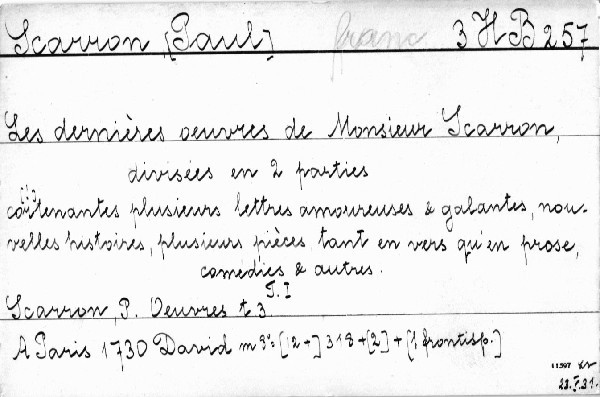 Scarron, [Paul] franc 3 H B 257
Les dernières oeuvres de Monsieur Scarron,
divisées en 2 parties
contenantes plusieurs lettres amoureuses & galantes, nou-
velles histoires, plusieurs pièces tant en vers qu'en prose,
comédies & autres.
T. I
Scarron, P. Oeuvres t. 3
A Paris 1730 David m 8º: [12+] 318 + [2] + [1 frontisp.]
11597
22.I.31.